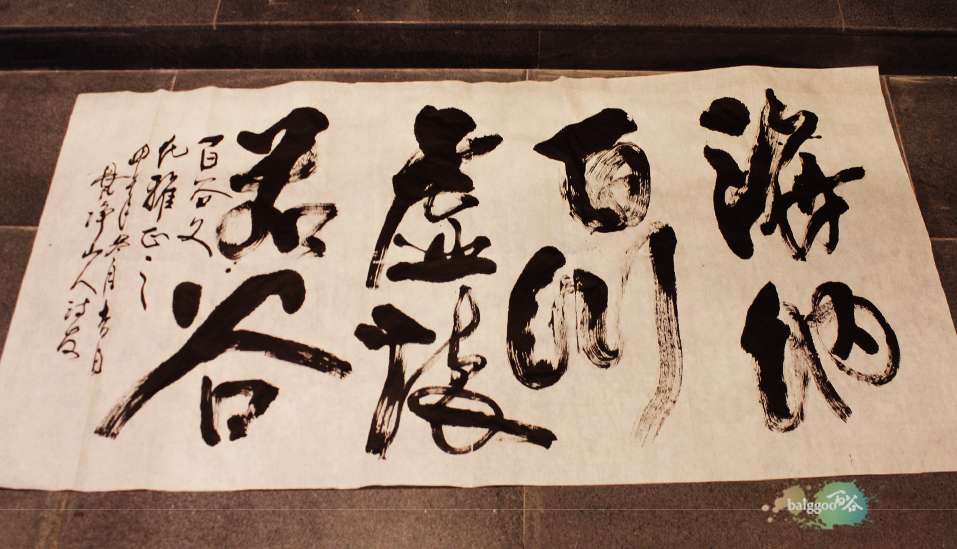 海纳
百川
虚懷
若谷
百谷文
化雅正之
甲午 月吉日
净山人
balggoo百谷